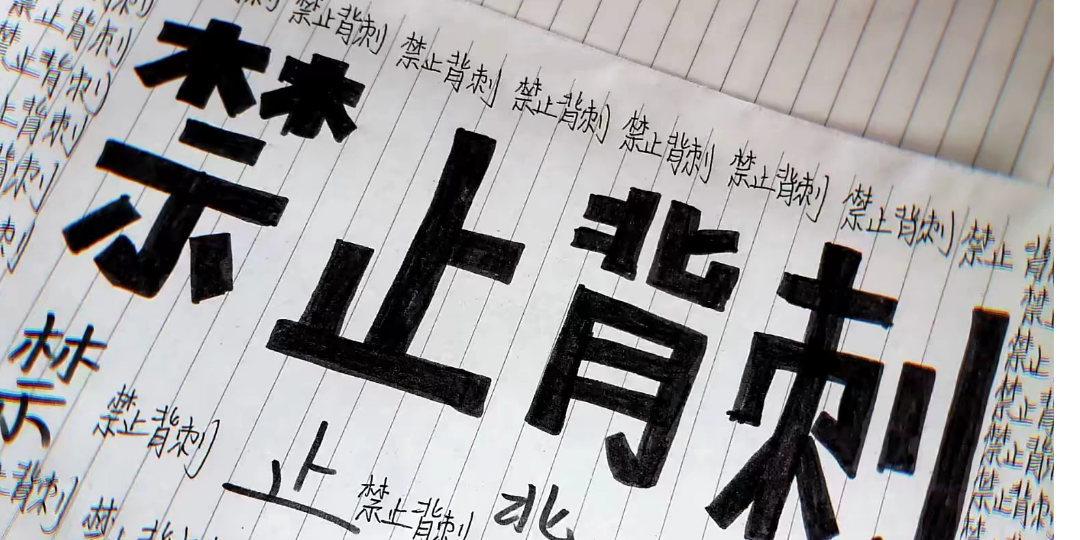 禁止背刺 禁止背刺 禁止背刺 禁止背刺 禁止背刺 禁止背刺 禁止背
禁止背刺
禁止背刺
止背刺
背刺
刺
禁止背刺
禁
禁止
禁止背
禁止背
禁止背刺
禁止背刺
禁
禁止背刺
止
禁止背刺
北
止背刺
禁止背刺